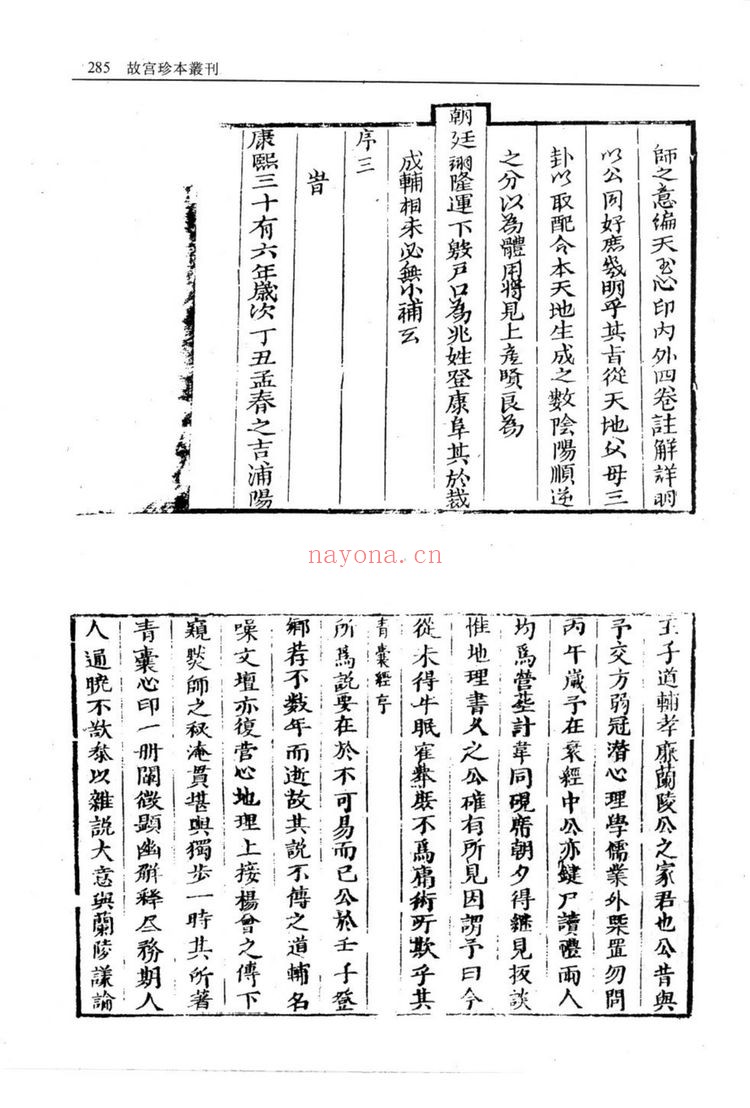 285 故宫珍本叢刊
師之意編天玉心印内外四卷註解詳明
以公同好庶幾明乎其旨從天地父母三
卦以取配合本天地生成之數陰陽順逆
之分以為體用將見上產賢良為
朝廷翊隆運下殷戸口為兆姓登康阜其於裁
成輔相未必無小補云
序三
旹
康熙三十有六年歲次丁丑孟春之吉浦陽
nayona.cn
王子道輔孝廉蘭陵公之家君也公昔與
予交方弱冠潛心理學儒業外槩置勿問
丙午歲予在衰絰中公亦鍵戸讀禮兩人
均爲營塟計韋同硯席朝夕得繼見扳談
惟地理書久之公確有所見因謂予曰今
從未得牛眠窀㱕嚴不爲庸術所欺乎其
青囊經序
所爲說要在於不可易而已公於壬子登
鄉荐不數年而逝故其說不傳之道輔名
噪文壇亦復营心地理上接楊曾之傳下
窺燹師之秘淹貫堪輿獨步一時其所著
青囊心印一册闡微顕幽解釋尽務期人
人通曉不敢叅以雜説大意與蘭陵議論